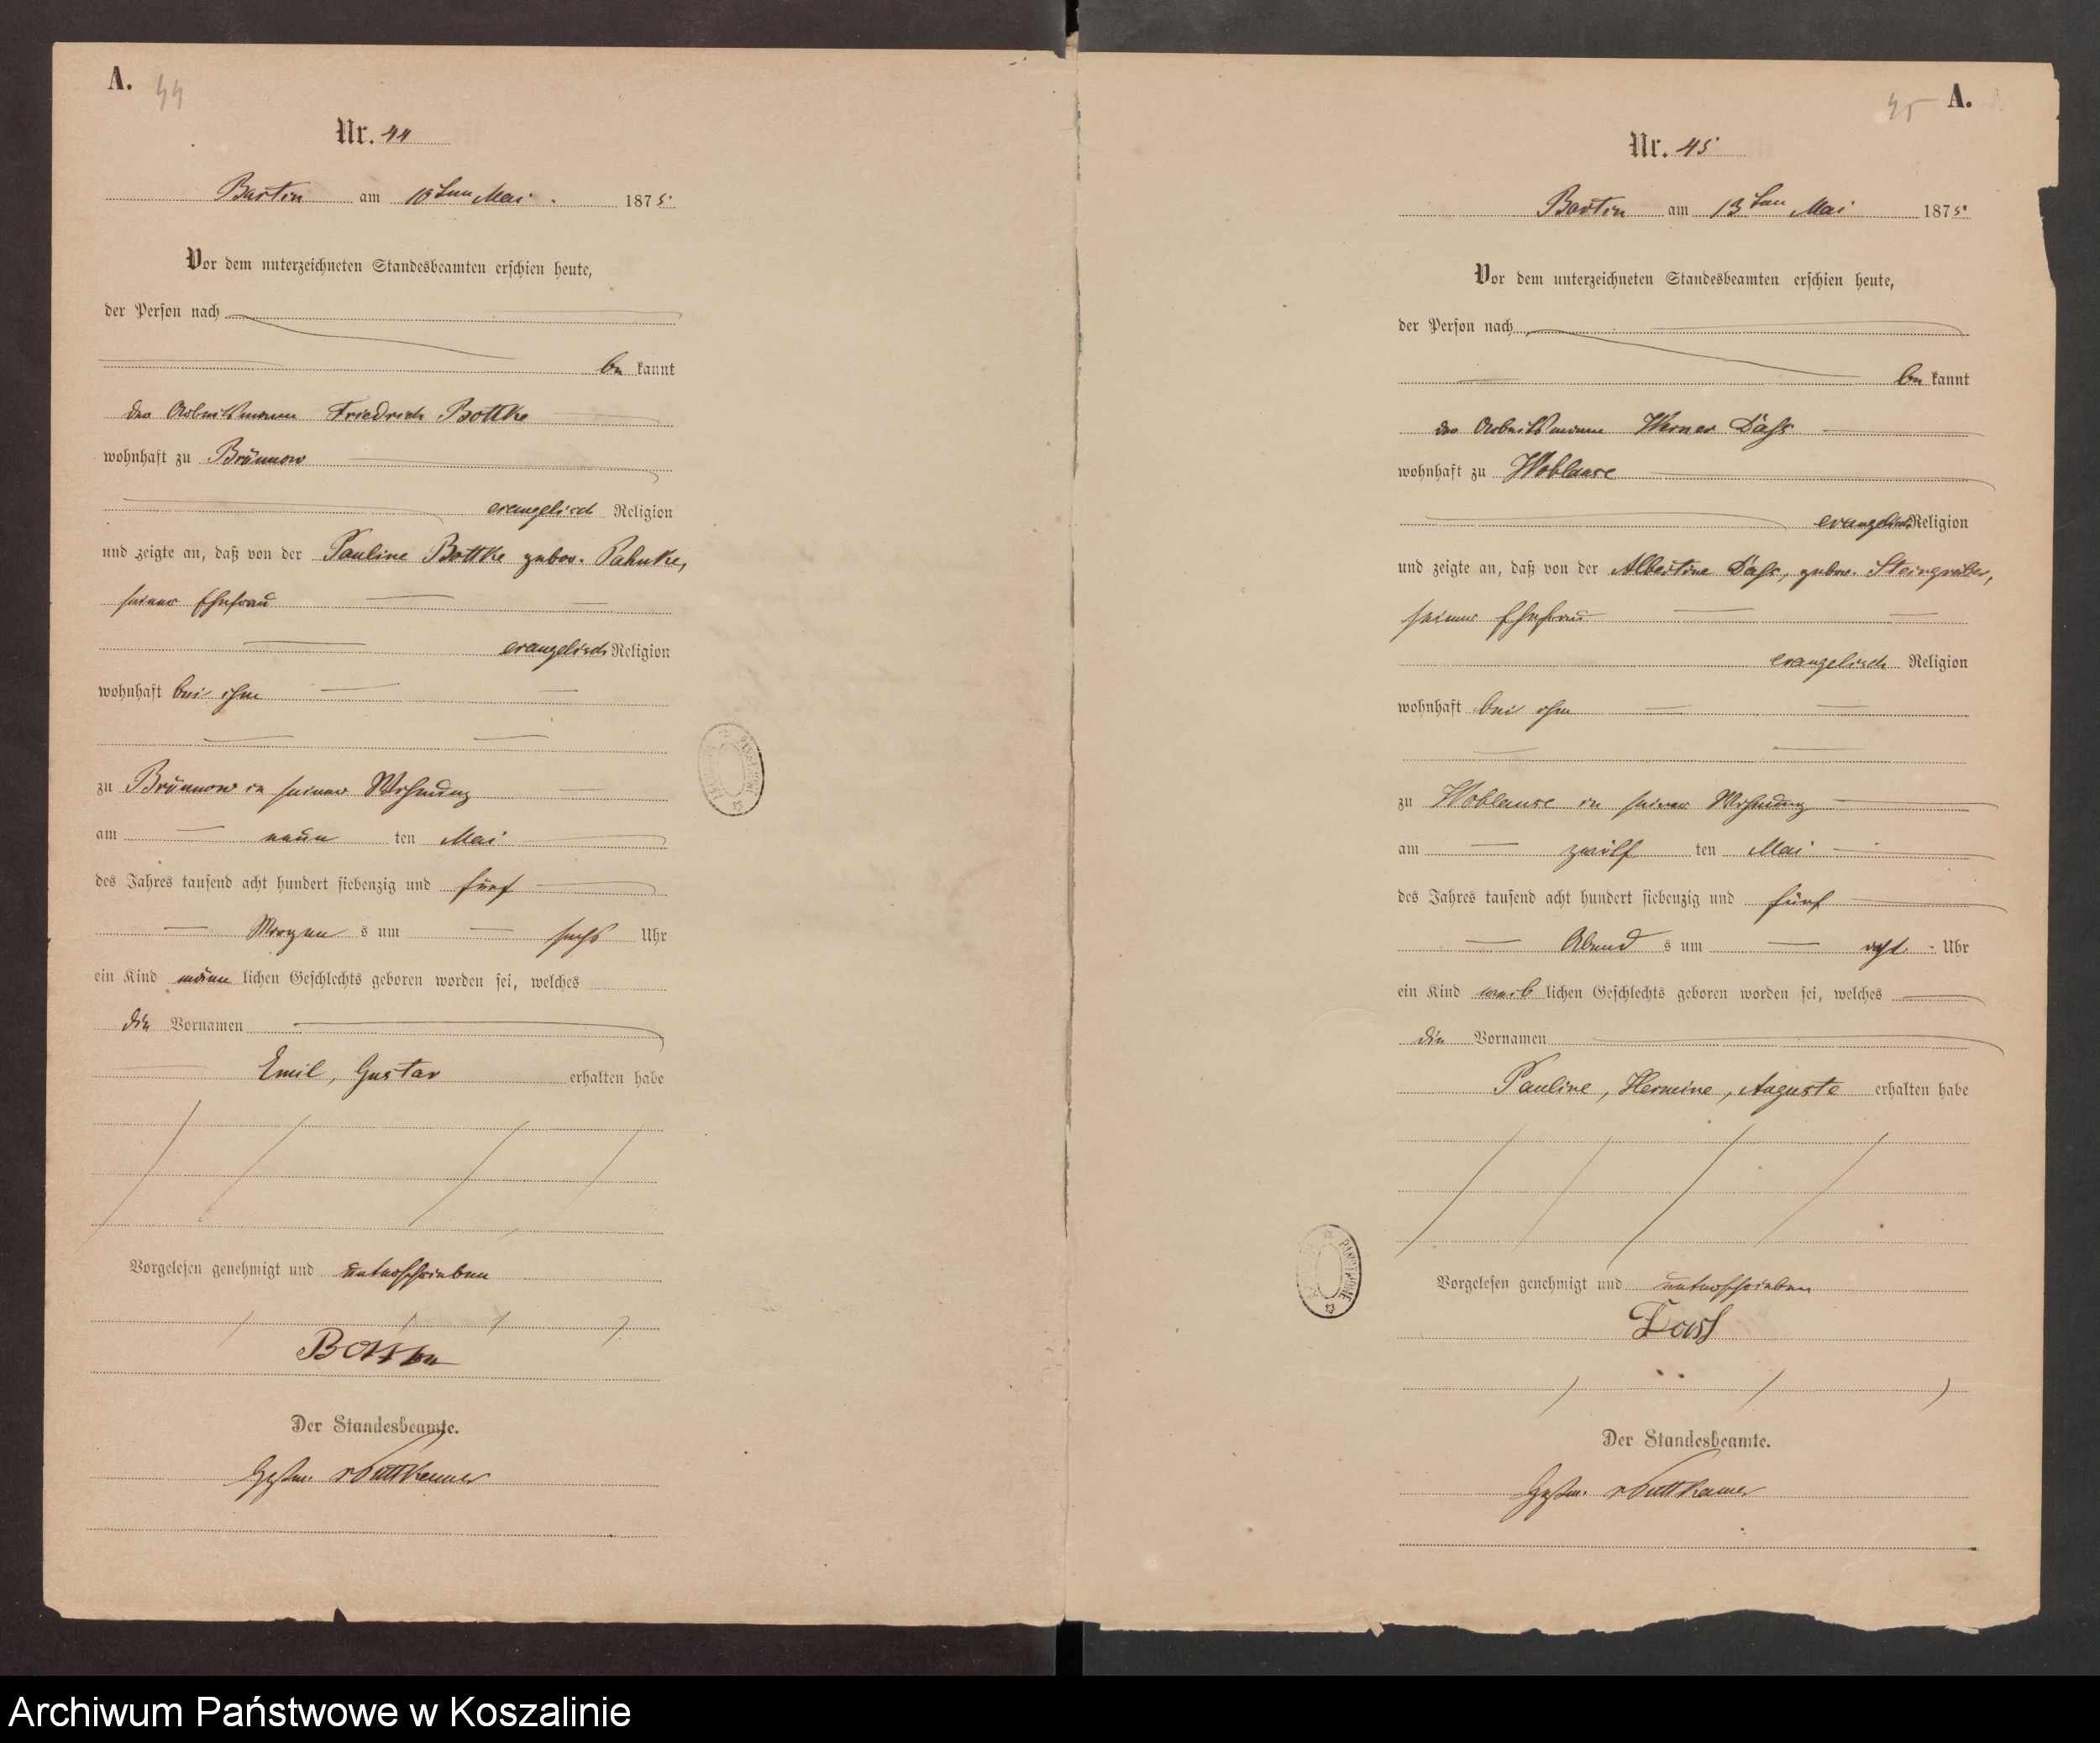 A.
44
Nr. 44
Bartin am 10ten Mai 1875
Vor dem unterzeichneten Standesbeamten erschien heute,
der Person nach
be kannt
der Arbeitsmann Friedrich Bottke
wohnhaft zu Brünnow
evangelisch Religion
und zeigte an, daß von der Pauline Bottke gebor. Pahnke,
seiner Ehefrau
evangelisch Religion
wohnhaft bei ihm
zu Brünnow in seiner Wohnung
am neun ten Mai
des Jahres tausend acht hundert siebenzig und fünf
Morgen s um sechs Uhr
ein Kind männ lichen Geschlechts geboren worden sei, welches
die Vornamen
Emil, Gustav erhalten habe
Vorgelesen genehmigt und unterschrieben
Bottke
Der Standesbeamte.
vPuttkamer
45
A.
Nr. 45
Bartin am 13ten Mai 1875
Vor dem unterzeichneten Standesbeamten erschien heute,
der Person nach
be kannt
der Arbeitsmann Werner
wohnhaft zu Woblanse
evangelisch Religion
und zeigte an, daß von der Albertine gebor. Steingräber,
seiner Ehefrau
evangelisch Religion
wohnhaft bei ihm
zu Woblanse in seiner Wohnung
am zwölf ten Mai
des Jahres tausend acht hundert siebenzig und fünf
Abend s um acht Uhr
ein Kind weib lichen Geschlechts geboren worden sei, welches
die Vornamen
Pauline, Hermine, Auguste erhalten habe
Vorgelesen genehmigt und unterschrieben
Der Standesbeamte.
vPuttkamer
Archiwum Państwowe w Koszalinie